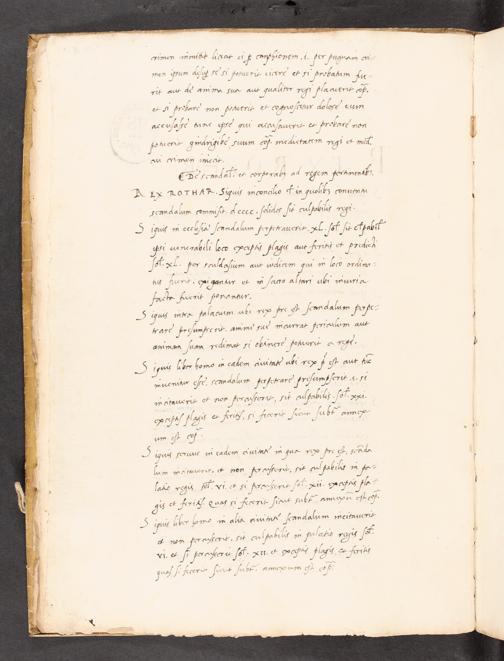 crimen inmittit liceat ei p camphionem .i. per pugnam cri-
men ipsum de sup se si potuerit eicere et si probatum fue
rit aut de anima sua aut qualiter regi placuerit cop.
et si probare non potuerit et cognoscitur dolose eum
accusasse tunc ipse qui accusaverit et probare non
potuerit guidrigild suum cop medietatem regi et med.
cui crimen iniecit.
De scandal. et corporab. ad regem pertinentib.
EX ROTHAR. Siquis in concilio l in quolib conventu
scandalum commiserit dcccc. solidos sit culpabilis regi.
Siquis in ecclesia scandalum perpetraverit. XL. sol. sit culpabil
ipsi venerabili loco exceptis plagis aut feritis et predicti
sol. XL. per sculdasium aut iudicem qui in loco ordina-
tus fuerit, exigantur et in sacro altari ubi iniuria
facta fuerit ponantur.
Siquis intra palatium ubi rex pre est scandalum perpe-
trare presumpserit. anime sue incurrat periculum aut
animam suam redimat si obtinere potuerit a rege.
Siquis liber homo in eadem civitate ubi rex p est aut tunc
invenitur esse, scandalum perpetrare presumpserit .i. si
incitaverit et non percusserit, sit culpabilis. sol. xxi.
exceptis plagis et ferit. si fecerit sicut subt annex-
um est cop.
Siquis servus in eadem civitate in qua rex pre est, scanda
lum incitaverit, et non percusserit, sit culpabilis in pa-
latio regis sol. VI. et si percusserit sol. XII. exceptis pla-
gis et ferit. quas si fecerit sicut subt annexum est cop.
Siquis liber homo in alia civitate scandalum incitaverit
et non percusserit, sit culpabilis in palatio regis sol.
VI. et si percusserit sol. XII. et exceptis plagis et feritis
quas si fecerit sicut subt. annexum est cop.